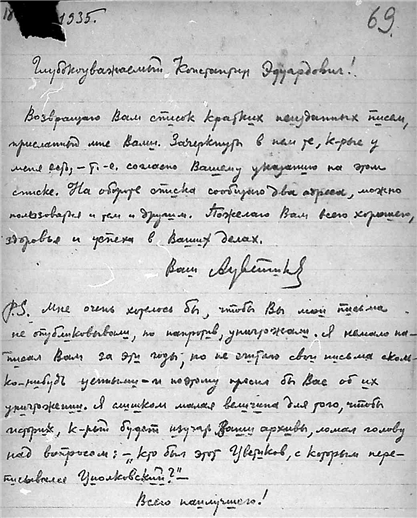 1935.
69.
Глубокоуважаемый Константин Эдуардович!
Возвращаю Вам список кратких неизданных писем,
присланный мне Вами. Зачеркнуты в нем те, к-рые у
меня есть, – т.-е. согласно Вашему указанию на этом
списке. На обороте списка сообщаю два адреса, можно
пользоваться и тем и другим. Пожелаю Вам всего хорошего,
здоровья и успеха в Ваших делах.
Ваш
P.S. Мне очень хотелось бы, чтобы Вы мои письма
не опубликовывали, но напротив, уничтожали. Я немало на-
писал Вам за эти годы, но не считаю свои письма сколь-
ко-нибудь ценными – и поэтому просил бы Вас об их
уничтожении. Я слишком малая величина для того, чтобы
историк, к-рый будет изучать Ваши архивы, ломал голову
над вопросом: – „Кто был этот Цветиков, с которым пере-
писывался Циолковский?" –
Всего наилучшего!